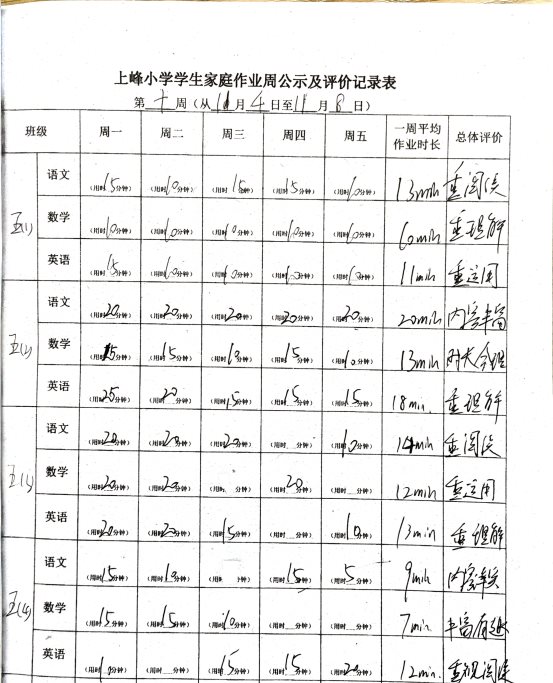 上峰小学学生家庭作业周公示及评价记录表
第 十 周（从 11 月 4 日至 11 月 8 日）
班级 周一 周二 周三 周四 周五 一周平均作业时长 总体评价
五(1) 语文 （用时15分钟） （用时10分钟） （用时15分钟） （用时15分钟） （用时10分钟） 13min 重阅读
数学 （用时10分钟） （用时10分钟） （用时10分钟） （用时10分钟） （用时10分钟） 10min 重理解
英语 （用时15分钟） （用时10分钟） （用时10分钟） （用时10分钟） （用时10分钟） 11min 重运用
五(2) 语文 （用时20分钟） （用时20分钟） （用时20分钟） （用时20分钟） （用时20分钟） 20min 内容丰富
数学 （用时15分钟） （用时15分钟） （用时10分钟） （用时15分钟） （用时10分钟） 13min 时长合理
英语 （用时25分钟） （用时20分钟） （用时15分钟） （用时15分钟） （用时15分钟） 18min. 重理解
五(3) 语文 （用时20分钟） （用时20分钟） （用时20分钟） （用时 分钟） （用时10分钟） 14min 重阅读
数学 （用时20分钟） （用时20分钟） （用时 分钟） （用时20分钟） （用时 分钟） 12min 重运用
英语 （用时20分钟） （用时20分钟） （用时15分钟） （用时 分钟） （用时10分钟） 13min 重理解
五(4) 语文 （用时15分钟） （用时10分钟） （用时 分钟） （用时15分钟） （用时5分钟） 9min 内容
数学 （用时15分钟） （用时15分钟） （用时10分钟） （用时 分钟） （用时 分钟） 7min. 丰富有趣
英语 （用时10分钟） （用时 分钟） （用时15分钟） （用时15分钟） （用时20分钟） 12min 重视阅读